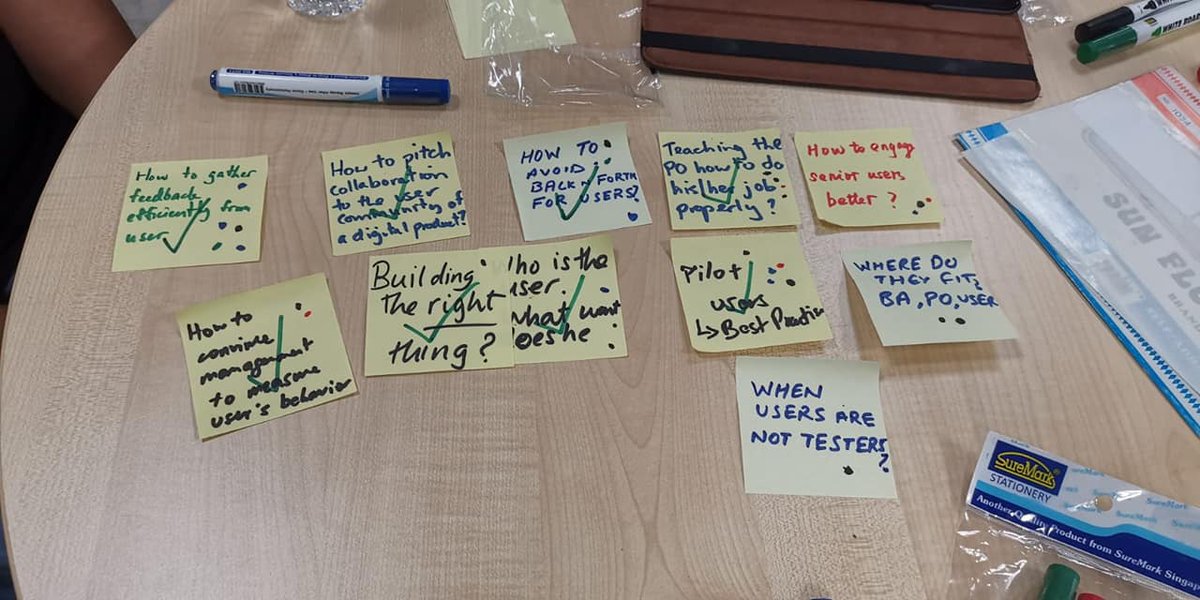 How to gather
feedback
efficiently from
user
How to pitch
collaboration
to the user
community of
a digital product?
HOW TO
AVOID
BACK N FORTH
FOR USERS?
Teaching the
PO how to do
his/her job
properly?
How to engage
senior users
better?
How to
convince
management
to measure
user's behavior
Building
the right
thing?
Who is the
user.
what want
does he
Pilot
users
↳ Best Practice
WHERE DO
THEY FIT:
BA, PO, USER
WHEN
USERS ARE
NOT TESTERS?
WHITE BOARD
SUN FL
SureMark
STATIONERY
Another Quality Product from SureMark Singap